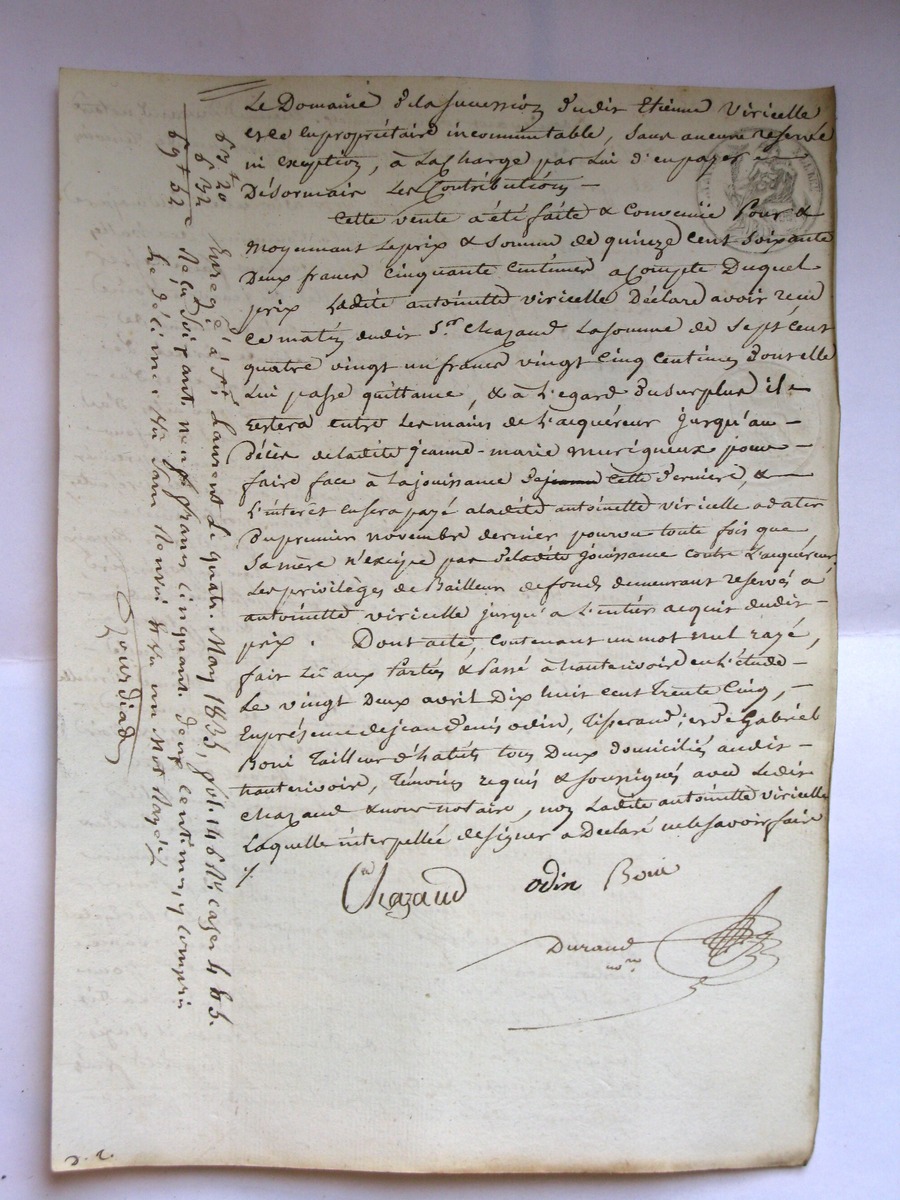 Le Domaine de la succession dudit Etienne Viricelle
et ce en propriétaire incommutable, sans aucune reserve
ni exception, à la charge par lui d'en payer
Désormais Les Contributions
Cette vente a été faite & Convenüe Pour &
moyennant le prix & somme de quinze cent soixante
Deux francs Cinquante Centimes acompte Duquel
prix Ladite antoinette viricelle Déclare avoir reçu
ce matin dudit Sr. Chazaud La somme de sept cent
quatre vingt un francs vingt Cinq Centimes Dont elle
Lui passe quittance, & à L'egard du surplus il
restera entre Les mains de L'acquéreur jusqu'au
Décès de ladite jeanne-marie murigneux pour
faire face à la jouissance de cette derniere, &
L'intérêt en sera payé a ladite antoinette viricelle a dater
Du premier novembre dernier pourvu toute fois que
sa mère n'excipe pas de ladite jouissance contre L'acquéreur
Les privilèges de Bailleur de fonds demeurant reservés à
antoinette viricelle jusqu'à L'entier acquit dudit
prix. Dont acte, contenant un mot nul rayé,
fait Lu aux Parties & Passé à hauterivoire en L'étude
Le vingt Deux avril Dix huit cent Trente Cinq,
En présence de jean denis odin, Tisserand; et de Gabriel
Boni Tailleur d'habits tous Deux domiciliés audit
hauterivoire, Témoins requis & soussignés avec Ledit
Chazaud & nous notaire, non Ladite antoinette viricelle
Laquelle interpellée de signer a Déclaré ne le savoir faire
Chazaud odin Boni
Durand
nore
63f 20
6. 32
69f 52c
Enregé à St Laurent Le quatre May 1835, fol. 146 Ro. cases 4 & 5.
Reçu soixante neuf francs cinquante deux centimes y compris
Le décime Vu sans Renvoi & Vu un Mot Rayé
D. 2.